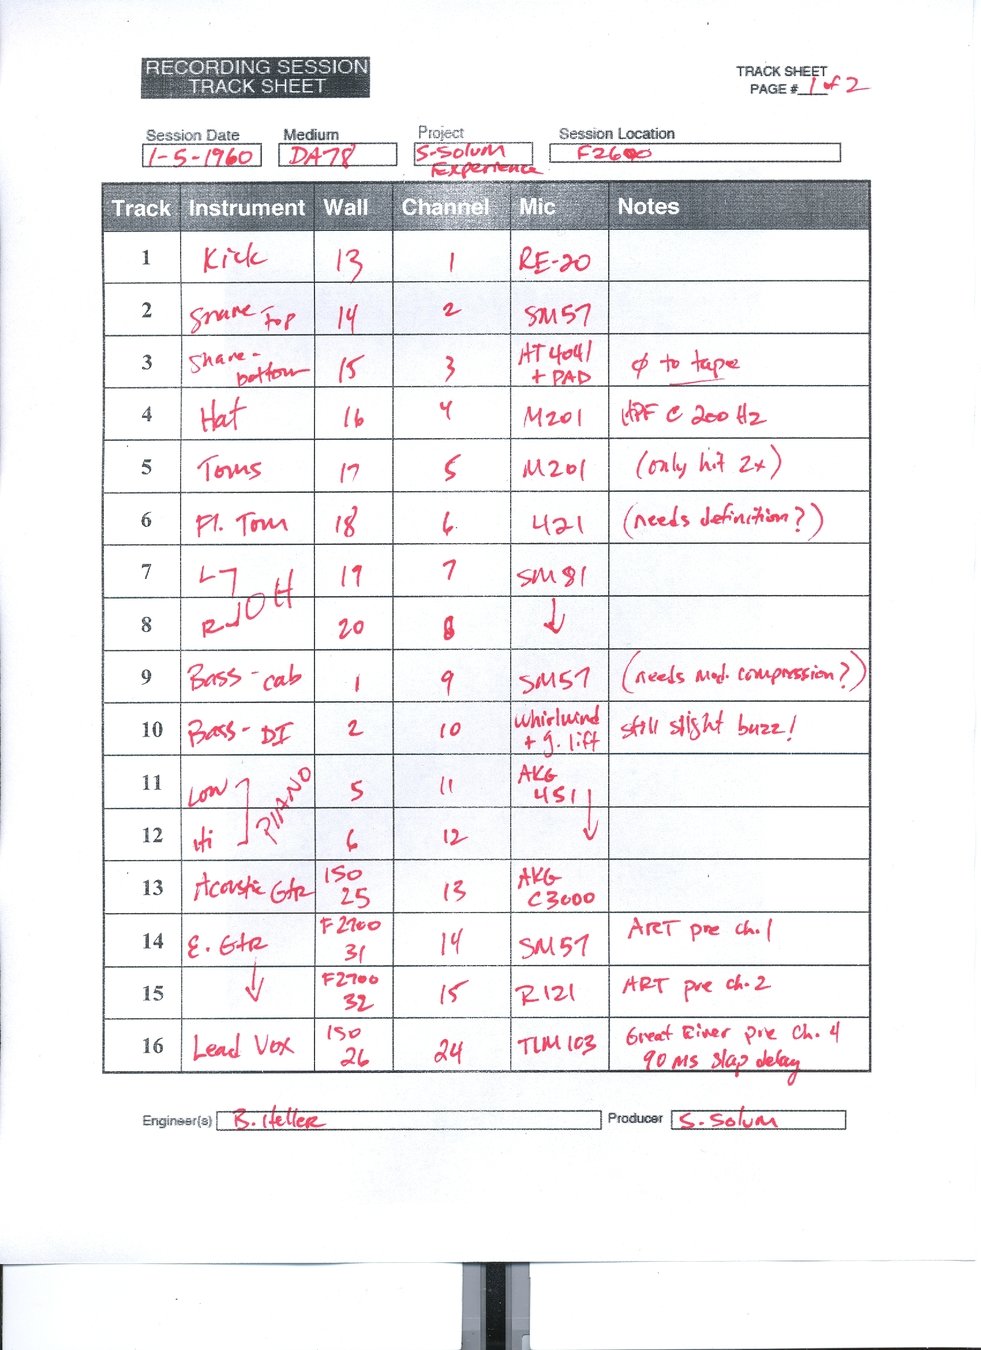 RECORDING SESSION
TRACK SHEET
TRACK SHEET
PAGE # 1 of 2
Session Date Medium Project Session Location
1-5-1960 DA78 S-Solum F2600
Experience
Track Instrument Wall Channel Mic Notes
1 Kick 13 1 RE-20
2 Snare Top 14 2 SM57
3 Snare- 15 3 AT4041 ø to tape
bottom + PAD
4 Hat 16 4 M201 HPF C 200 Hz
5 Toms 17 5 M201 (only hit 2x)
6 Fl. Tom 18 6 421 (needs definition?)
7 L 19 7 SM81
OH
8 R 20 8
9 Bass-cab 1 9 SM57 (needs mod. compression?)
10 Bass-DI 2 10 Whirlwind still slight buzz!
+ g. lift
11 Low 5 11 AKG
451
PIANO
12 Hi 6 12
13 Acoustic Gtr ISO 13 AKG
25 C3000
14 E. Gtr F2700 14 SM57 ART pre ch. 1
31
15 F2700 15 R121 ART pre ch. 2
32
16 Lead Vox ISO 24 TLM103 Great River pre Ch. 4
26 90 ms slap delay
Engineer(s) B. Heller Producer S-Solum